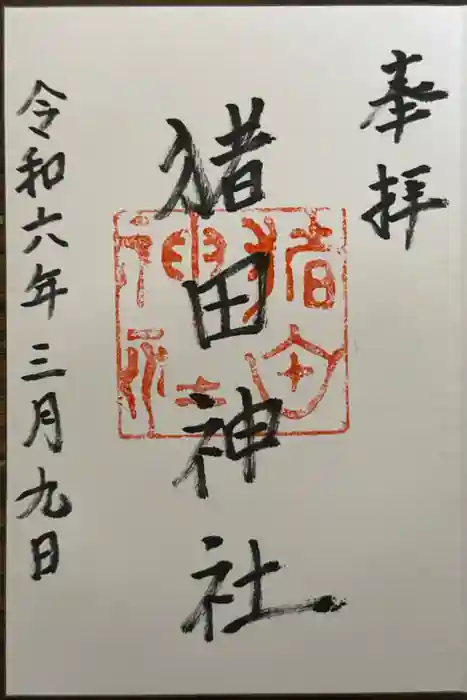 奉拝
猪田神社
猪田
神社
令和六年三月九日